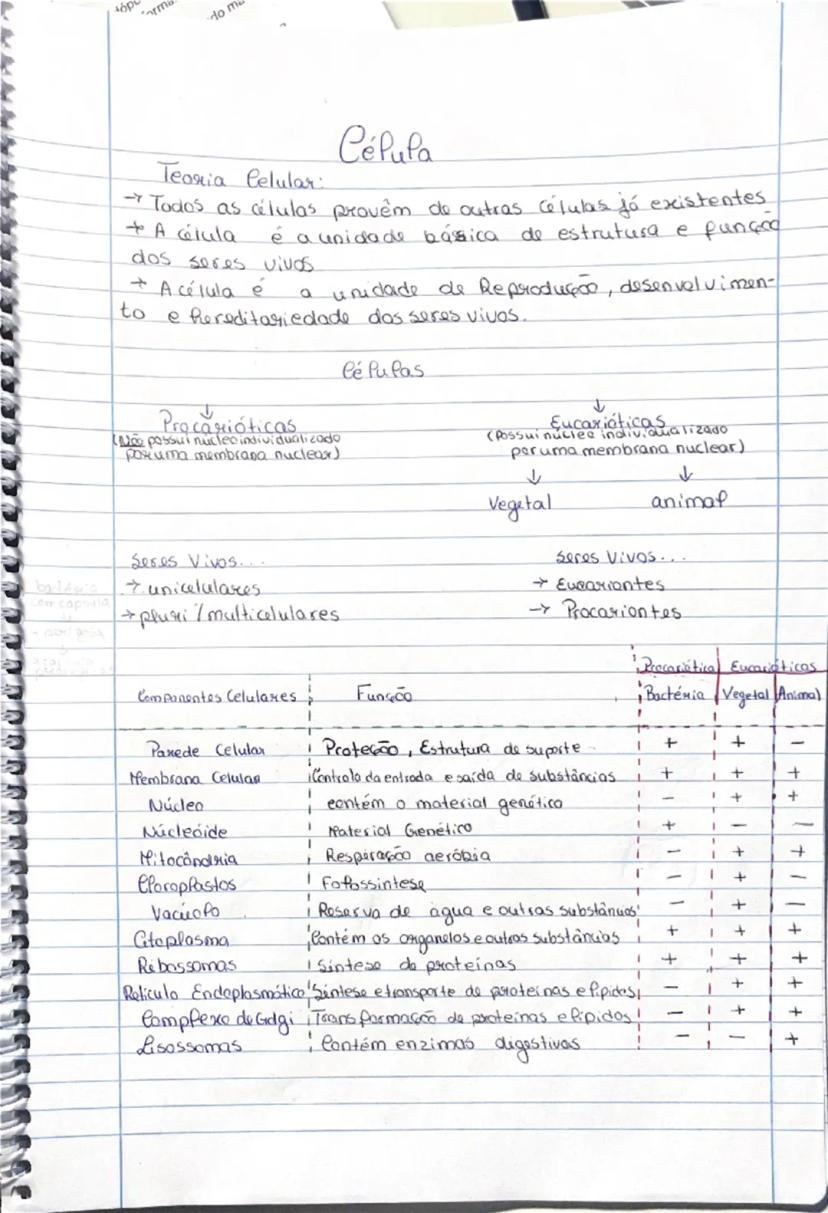 do
Célula
Teoria Celular:
→ Todos as células provêm de outras células já existentes
→ A célula é a unidade básica de estrutura e função
dos seres vivos
→ A célula é a unidade de Reprodução, desenvolvimen-
to e hereditariedade dos seres vivos.
Células
↓ ↓
Procarióticas Eucarióticas
(Não possui núcleo individualizado (Possui núcleo individualizado
por uma membrana nuclear) por uma membrana nuclear)
↓ ↓
Vegetal animal
Seres Vivos... Seres Vivos...
→ unicelulares → Eucariontes
→ pluri/multicelulares → Procariontes
bactéria
com capsula
Procariótica Eucarióticas
Componentes Celulares Função Bactéria Vegetal Animal
Parede Celular Proteção, Estrutura de suporte + + −
Membrana Celular Controlo da entrada e saída de substâncias + + +
Núcleo contém o material genético − + +
Núcleóide Material Genético + − −
Mitocôndria Respiração aeróbia − + +
Cloroplastos Fotossintese − + −
Vacúolo Reserva de água e outras substâncias − + −
Citoplasma Contém os organelos e outras substâncias + + +
Ribossomas Síntese de proteínas + + +
Retículo Endoplasmático Síntese e transporte de proteínas e lípidos − + +
Complexo de Golgi Transformação de proteínas e lípidos − + +
Lisossomas Contém enzimas digestivas − − +